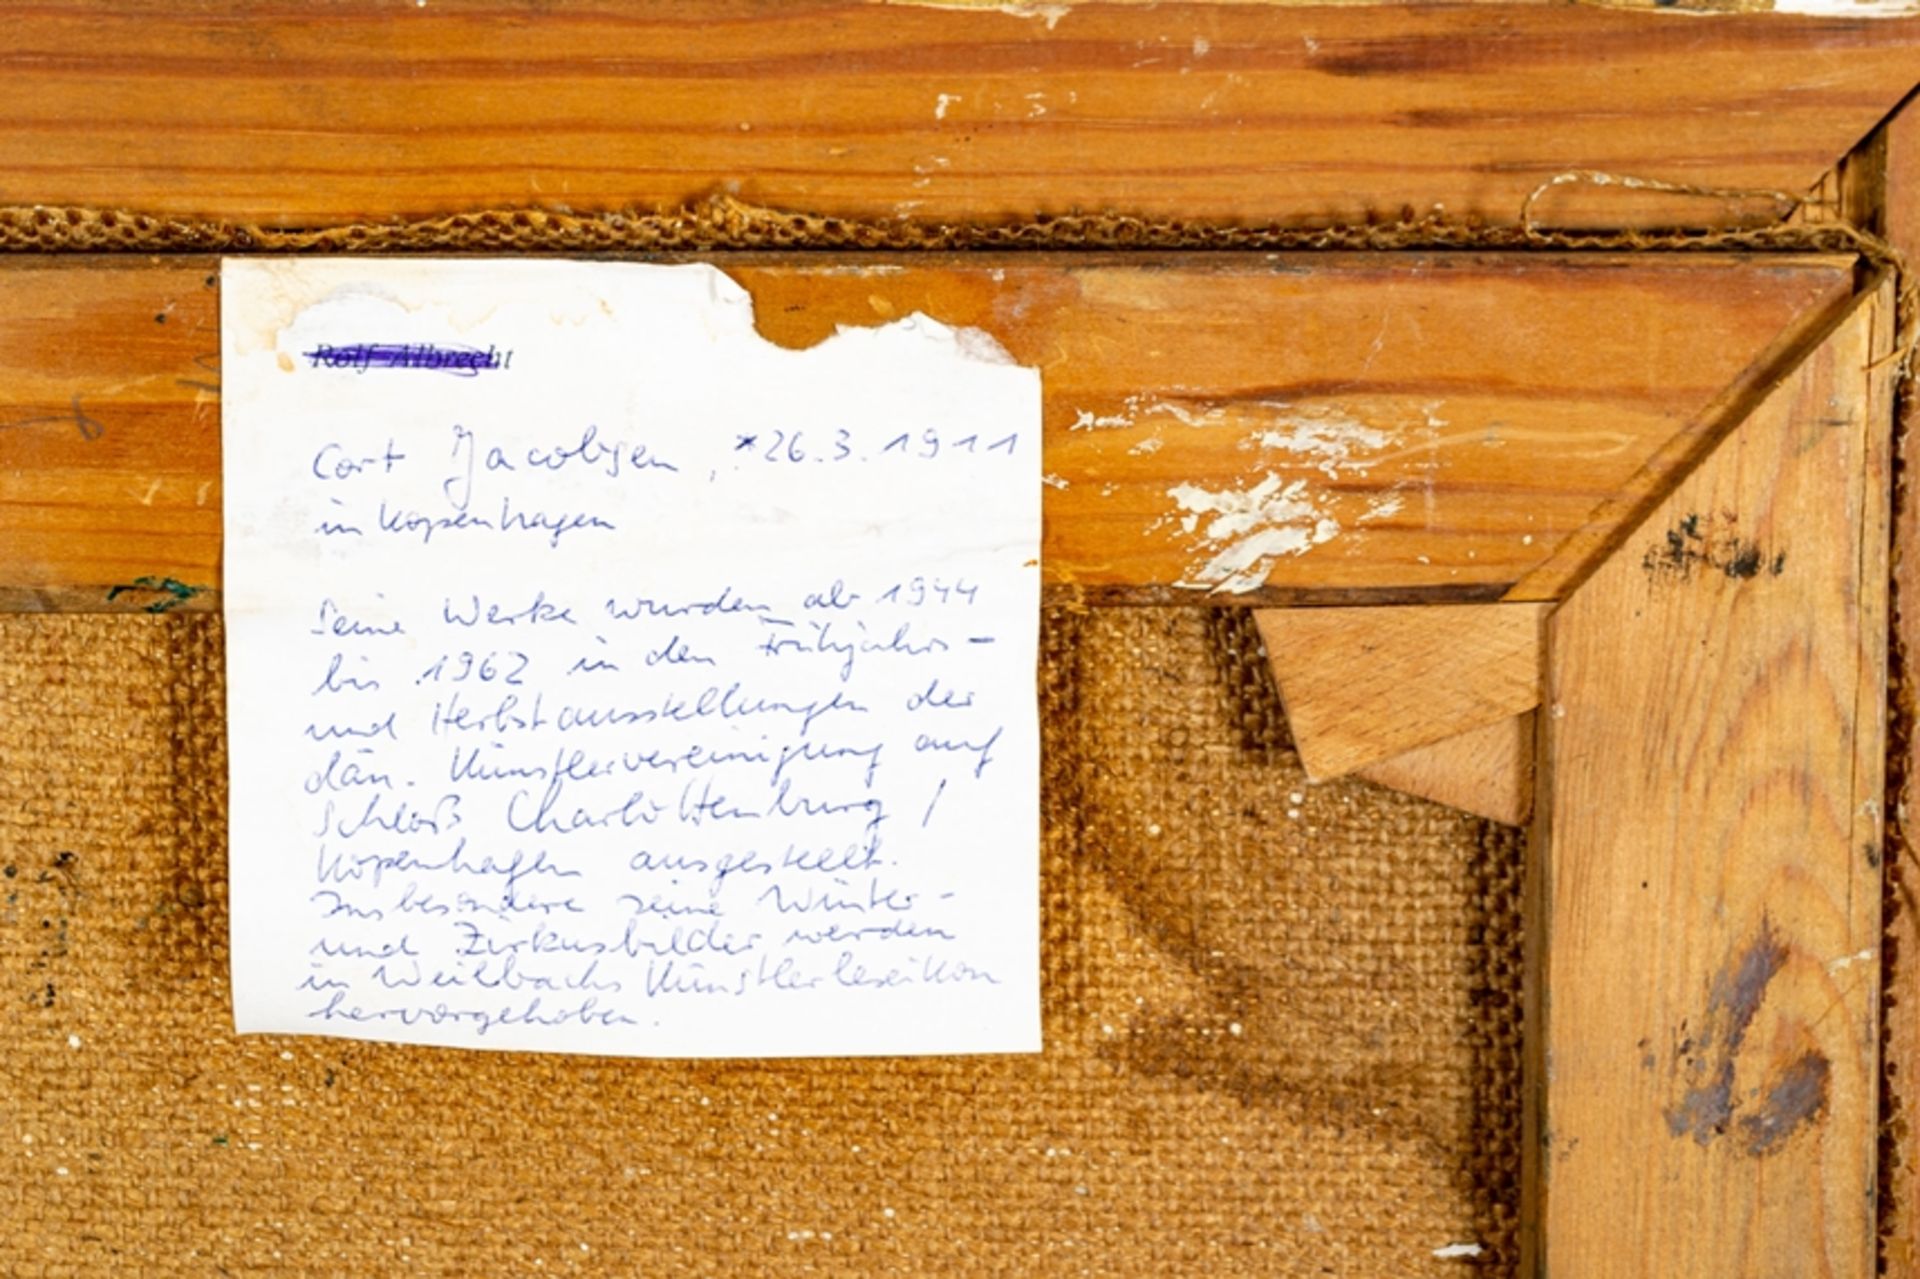 Rolf Albrecht
Cort Jacobsen, *26.3.1911
in Kopenhagen
Seine Werke wurden ab 1944
bis 1962 in den Frühjahrs-
und Herbstausstellungen der
dän. Künstlervereinigung auf
Schloß Charlottenburg /
Kopenhagen ausgestellt.
Insbesondere seine Winter-
und Zirkusbilder werden
in Weilbachs Künstlerlexikon
hervorgehoben.